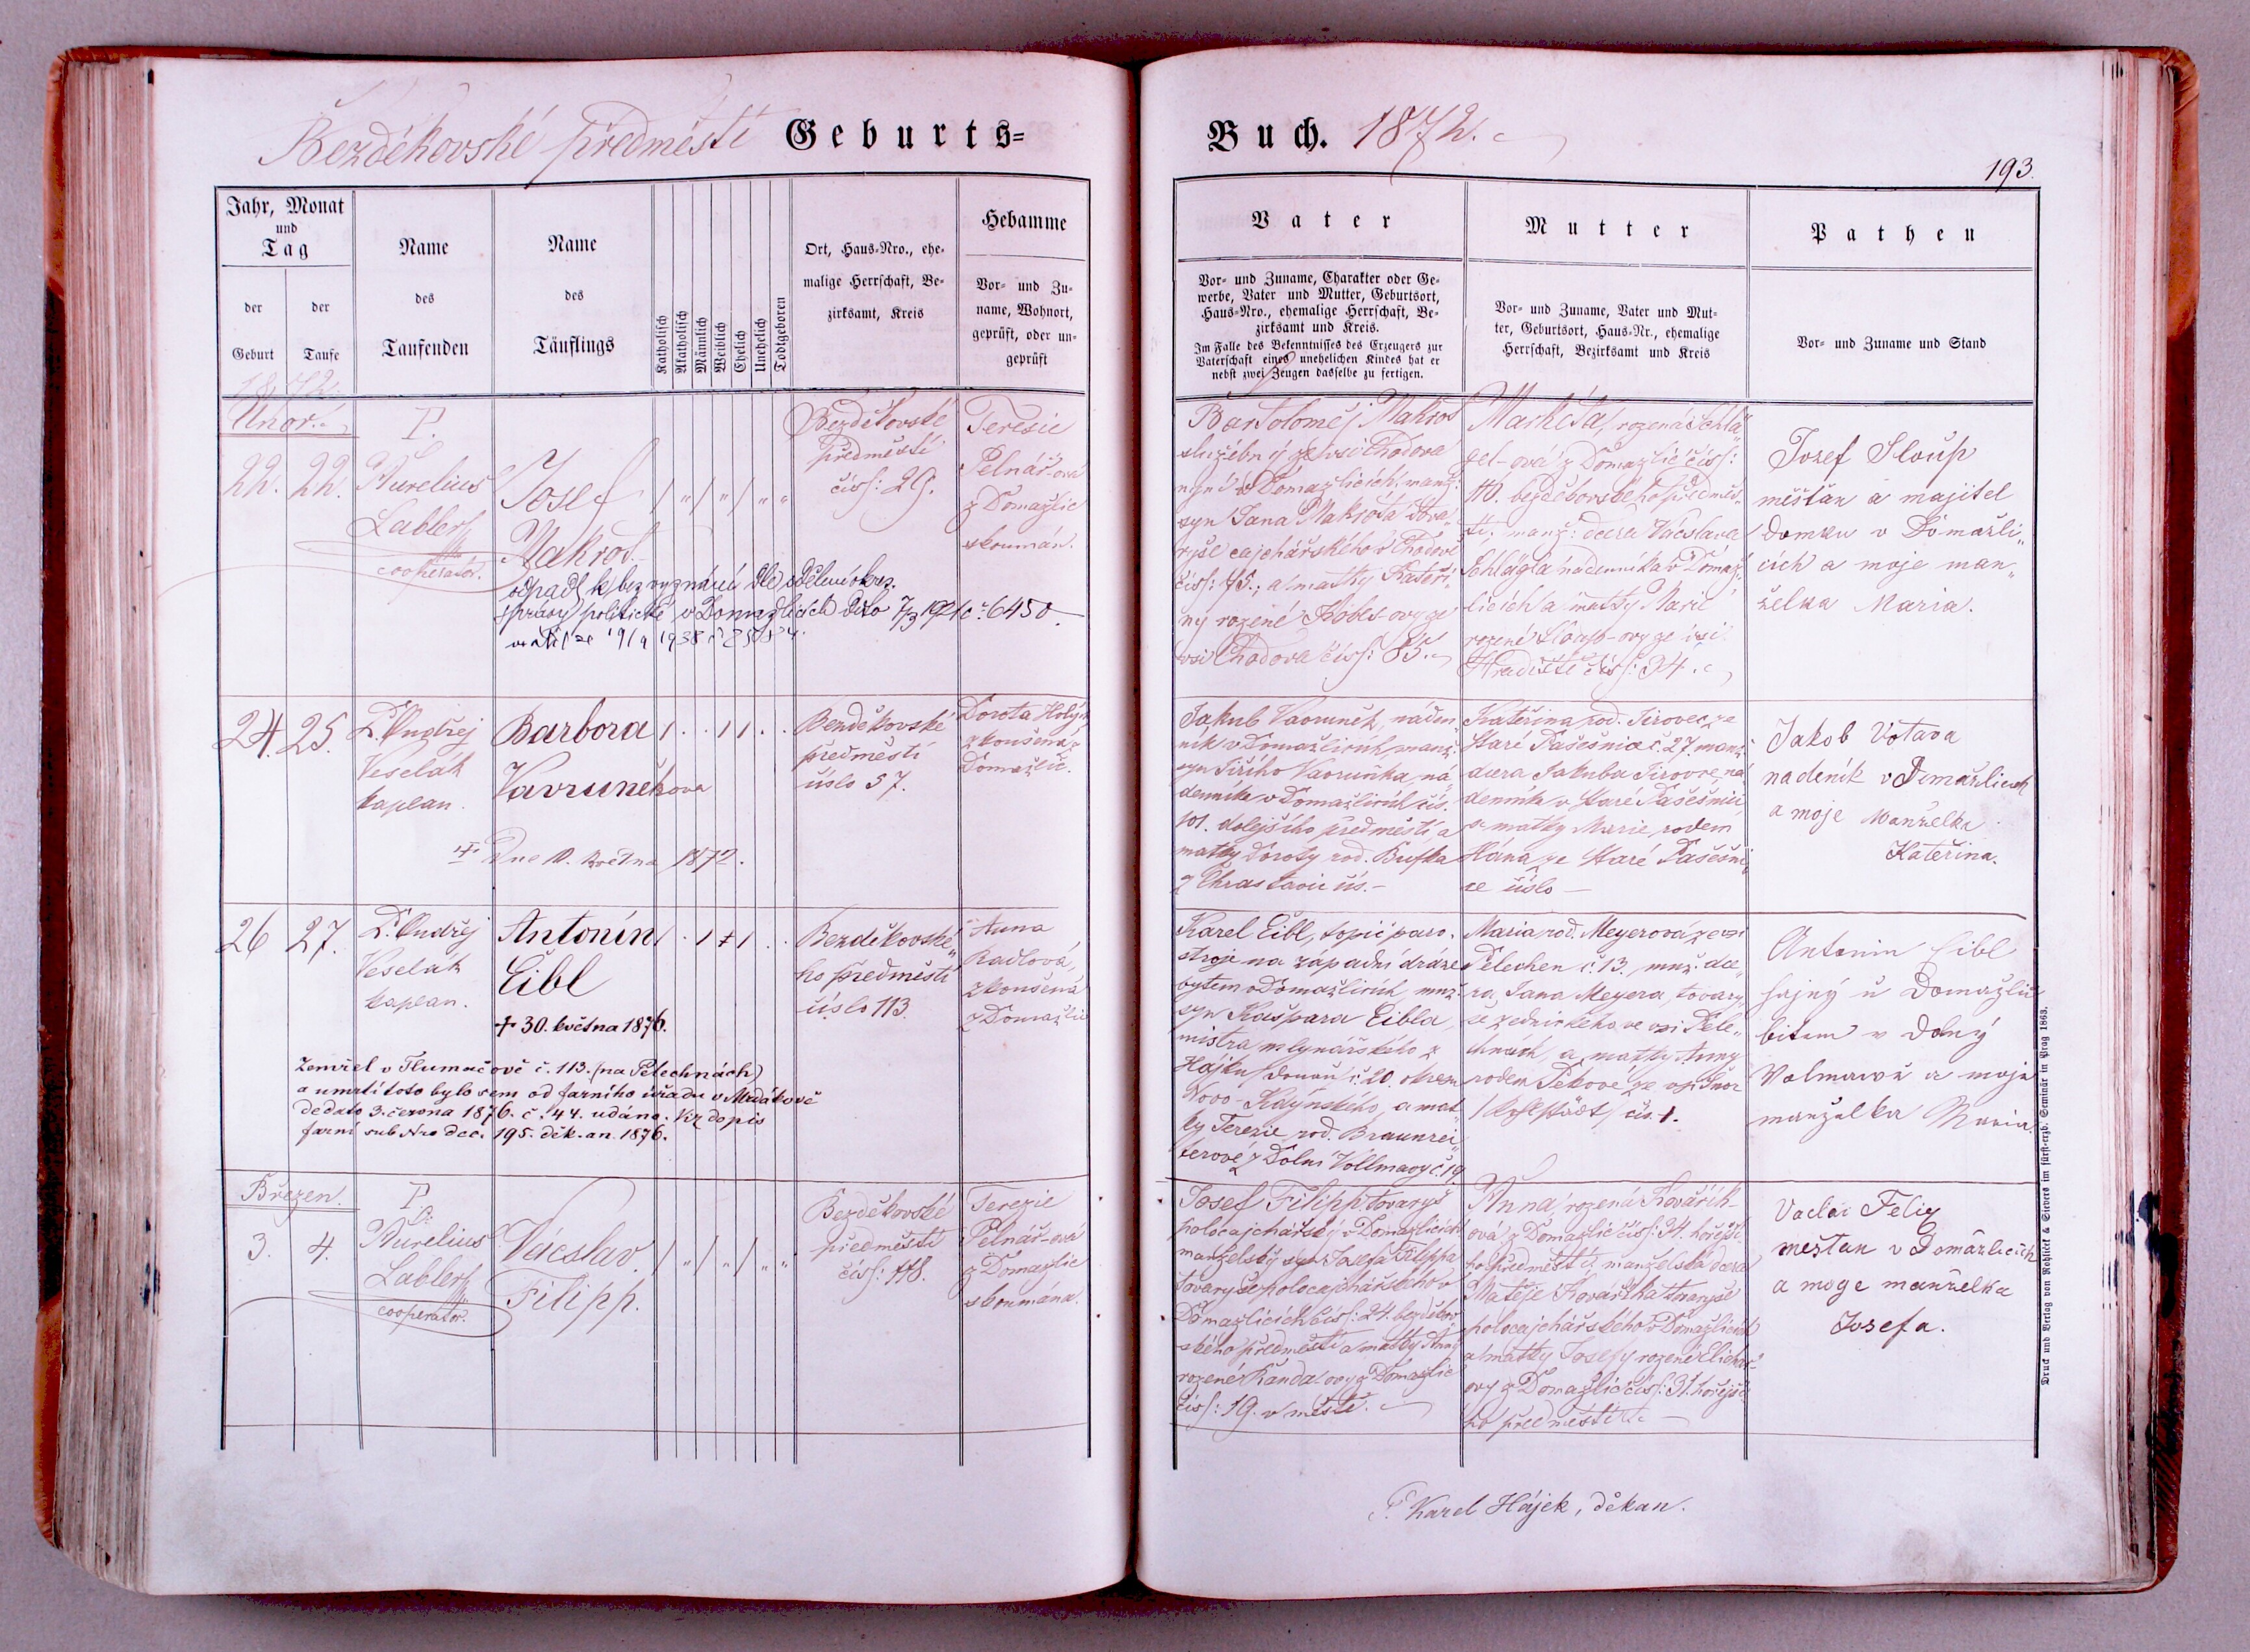 Bezděkovské předměstí Geburts=
Buch. 1872.
193.
Jahr, Monat
und
Tag
der
Geburt
der
Taufe
Name
des
Taufenden
Name
des
Täuflings
Katholisch
Akatholisch
Männlich
Weiblich
Ehelich
Unehelich
Todtgeboren
Ort, Haus=Nro., ehe=
malige Herrschaft, Be=
zirksamt, Kreis
Hebamme
Vor= und Zu=
name, Wohnort,
geprüft, oder un=
geprüft
Vater
Vor= und Zuname, Charakter oder Ge=
werbe, Vater und Mutter, Geburtsort,
Haus=Nro., ehemalige Herrschaft, Be=
zirksamt und Kreis.
Im Falle des Bekenntnisses des Erzeugers zur
Vaterschaft eines unehelichen Kindes hat er
nebst zwei Zeugen dasselbe zu fertigen.
Mutter
Vor= und Zuname, Vater und Mut=
ter, Geburtsort, Haus=Nr., ehemalige
Herrschaft, Bezirksamt und Kreis
Pathen
Vor= und Zuname und Stand
1872.
Únor.
22. 22.
P.
Aurelius
Labler
cooperator.
Josef
Makroš
odpadl k bez vyznání dle sdělení okres.
správy politické v Domažlicích dto 7/3 1921 č. 6450.
Bezděkovské
předměstí
čís: 29.
Teresie
Pelnář-ová
z Domažlic
zkoumán.
Bartoloměj Makroš
služebný ze vsi Chodova
nyní v Domažlicích, manž:
syn Jana Makroše tova„
ryše cajchářského v Chodově
čís: 75., a matky Kateři„
ny rozené
vsi Chodova čís: 85.
Markéta, rozená Schlä„
gel-ová z Domažlic čís:
110. bezděkovského předměs„
tí, manž: dcera Václava
Schlägla nádenníka v Domaž„
licích a matky Marie
rozené Sloup-ovy ze vsi
Hradiště čís: 34.
Josef Sloup
měšťan a majitel
domku v Domažli„
cích a moje man„
želka Maria.
24. 25.
P. Ondřej
Veselák
kaplan.
Barbora
Vavruněkova
† Dne 10. května 1872.
Bezděkovské
předměstí
číslo 57.
Dorota Holých
zkoušená z
Domažlic.
Jakub Vavruněk, náden„
ník v Domažlicích, manž.
syn Jiřího Vavruňka, ná„
denníka v Domažlicích čís.
101. dolejšího předměstí, a
matky Doroty rod. Bufka
z Chrastavic čís. –
Kateřina rod. Jirovec, ze
Staré Pasečnice č. 27, manž.
dcera Jakuba Jirovce, ná„
denníka v Staré Pasečnici
a matky Marie, rodem
Hána, ze Staré Pasečni„
ce číslo –
Jakob Votava
nadeník v Domažlicich
a moje Manželka
Kateřina.
26 27.
P. Ondřej
Veselák
kaplan.
Antonín
Eibl
† 30. května 1876.
Zemřel v Tlumačově č. 113. (na Pelechnách)
a úmrtí toto bylo sem od farního úřadu v Mrdákově
dedato 3. června 1876. č. 44. udáno. Viz dopis
farní sub Nro dec. 195. děk. an. 1876.
Bezděkovské„
ho předměstí
číslo 113.
Anna
Radlová,
zkoušená
z Domažlic
Karel Eibl, topič paro.
stroje na západní dráze
bytem v Domažlicích, mnž.
syn Kašpara Eibla,
mistra mlynářského z
Hájku č. 20. okresu
Novo-Kdýnského, a mat„
ky Terezie rod. Braunrei„
terové z Dolní Vollmavy č. 19
Maria rod. Meyerová ze vsi
Pelechen č. 13., mnž. dce„
ra Jana Meyera, tovary„
še zednického ve vsi Pele„
chnách, a matky Anny
rodem Pekové, ze vsi
čís. 1.
Antonin Eibl
hajný u Domažlic
bitem v Dolný
Volmawě a moje
manželka Maria.
Březen.
3. 4.
P.
Aurelius
Labler
cooperator.
Vácslav
Filipp.
Bezděkovské
předměstí
čís: 118.
Terezie
Pelnář-ová
z Domažlic
zkoumána.
Josef Filipp, tovaryš
polocajchářský v Domažlicích
manželský syn Josefa Filippa
tovaryše polocajchářského v
Domažlicích čís: 24. bezděkov„
ského předměstí a matky Anny
rozené Kanda-ovy z Domažlic
čís: 19. v městě.
Anna, rozená Kovářík-
ová z Domažlic čís: 34. hořejší„
ho předměstí, manželská dcera
Matěje Kováříka tovaryše
polocajchářského v Domažlicích
a matky Josefy rozené
ovy z Domažlic čís: 31. hořejší„
ho předměstí.
Vaclav Felix
mestan v Domažlicich
a moge manželka
Josefa.
P. Karel Hájek, děkan.
Druck und Verlag von Rohliček & Sievers im fürst=erzb. Seminär in Prag 1863.